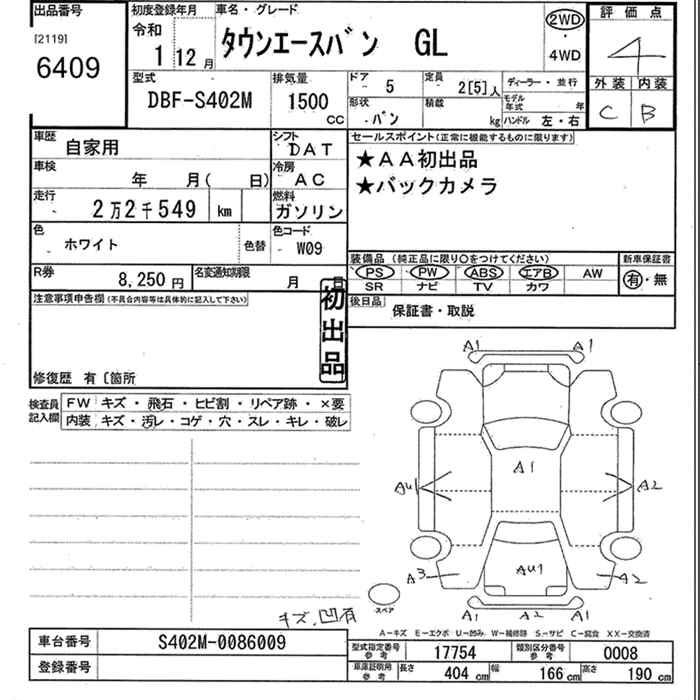 出品番号
[2119]
6409
初度登録年月
令和
1 12月
車名・グレード
タウンエースバン GL
2WD
・
4WD
評価点
4
外装 内装
C B
型式
DBF-S402M
排気量
1500
CC
ドア 5
形状 バン
定員 2[5]人
積載 kg
ディーラー・並行
モデル年式 年
ハンドル 左・右
車歴 自家用
シフト DAT
車検 年 月( 日)
冷房 AC
走行 2万2千549 km
燃料 ガソリン
色 ホワイト
色替
色コード W09
R券 8,250円
名変通知期限 月 日
セールスポイント(正常に機能するものに限ります)
★AA初出品
★バックカメラ
装備品(純正品に限り○をつけてください)
PS PW ABS エアB AW
SR ナビ TV カワ
新車保証書
有・無
後日品 保証書・取説
注意事項申告欄(不具合内容等は具体的に記入して下さい)
初出品
修復歴 有〔箇所
検査員記入欄
FW キズ・飛石・ヒビ割・リペア跡・×要
内装 キズ・汚レ・コゲ・穴・スレ・キレ・破レ
A1 A1
A1
AU1 A2
A3 AU1 A2
A1 A2 A1
スペア
キズ,凹有
A-キズ E-エクボ U-凹み W-補修跡 S-サビ C-腐食 XX-交換済
車台番号 S402M-0086009
登録番号
型式指定番号参考 17754
類別区分番号参考 0008
車庫証明用参考 長さ 404cm 幅 166cm 高さ 190cm